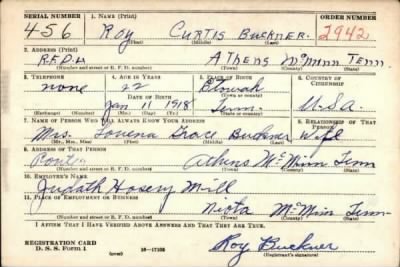 SERIAL NUMBER 1. NAME (Print) ORDER NUMBER
456 Roy Curtis Buckner. 2942
(First) (Middle) (Last)
2. ADDRESS (Print)
R.F.D.4 Athens McMinn Tenn.
(Number and street or R. F. D. number) (Town) (County) (State)
3. TELEPHONE 4. AGE IN YEARS 5. PLACE OF BIRTH 6. COUNTRY OF CITIZENSHIP
none 22 Etowah
DATE OF BIRTH (Town or county)
Jan 11 1918 Tenn. U.S.A.
(Exchange) (Number) (Mo.) (Day) (Yr.) (State or country)
7. NAME OF PERSON WHO WILL ALWAYS KNOW YOUR ADDRESS 8. RELATIONSHIP OF THAT PERSON
Mrs. Lovena Grace Buckner Wife
(Mr., Mrs., Miss) (First) (Middle) (Last)
9. ADDRESS OF THAT PERSON
Athens McMinn Tenn
(Number and street or R. F. D. number) (Town) (County) (State)
10. EMPLOYER'S NAME
Hosery Mill
11. PLACE OF EMPLOYMENT OR BUSINESS
Niota McMinn Tenn
(Number and street or R. F. D. number) (Town) (County) (State)
I AFFIRM THAT I HAVE VERIFIED ABOVE ANSWERS AND THAT THEY ARE TRUE.
REGISTRATION CARD Roy Buckner
D. S. S. Form 1 (over) 16—17105 (Registrant's signature)